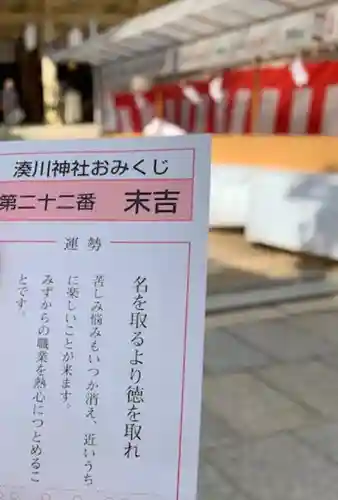 湊川神社おみくじ
第二十二番 末吉
運勢
名を取るより徳を取れ
苦しみ悩みもいつか消え、近いうち
に楽しいことが来ます。
みずからの職業を熱心につとめるこ
とです。